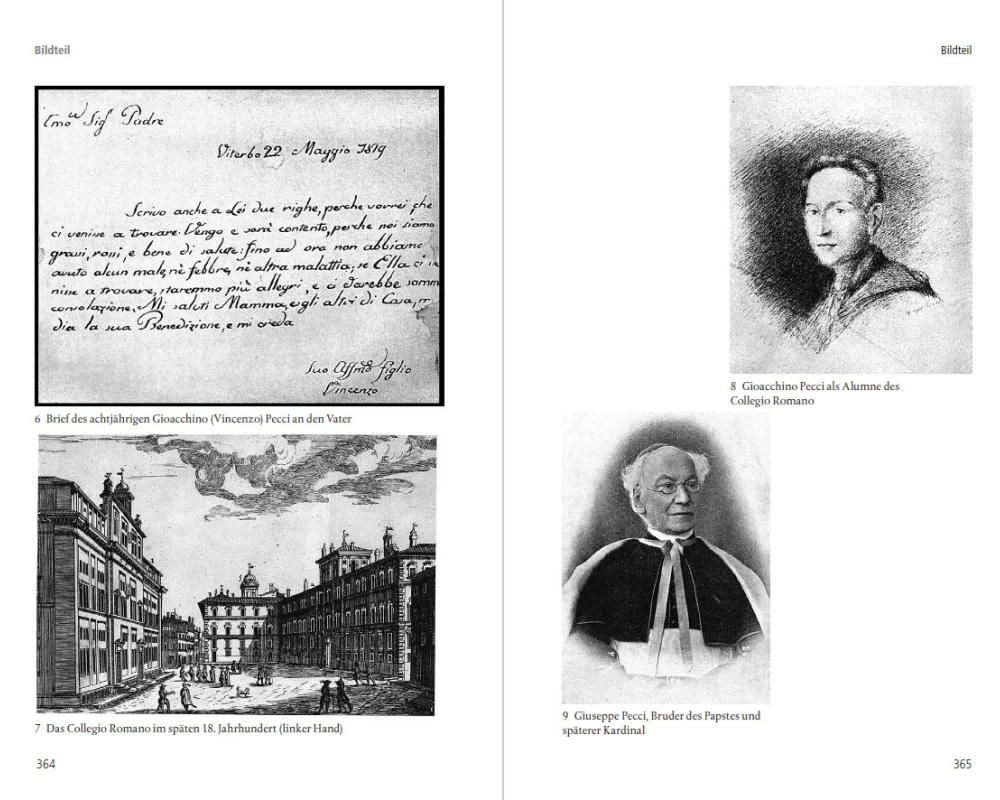 Bildteil
Sigr Padre
Viterbo 22 Maggio 1819
Scrivo anche a Lei due righe, perche vorrei che
ci venisse a trovare. Venga e sarà contento, perche noi siamo
grassi, rossi, e bene di salute: fino ad ora non abbiamo
avuto alcun male, nè febbre, nè altra malattia; se Ella ci
nisse a trovare, staremmo più allegri, e ci darebbe somm
consolazione. Mi saluti Mamma, e gli altri di Casa, m
dia la sua Benedizione, e mi creda
Suo Affmo figlio
Vincenzo
6 Brief des achtjährigen Gioacchino (Vincenzo) Pecci an den Vater
7 Das Collegio Romano im späten 18. Jahrhundert (linker Hand)
364
Bildteil
8 Gioacchino Pecci als Alumne des
Collegio Romano
9 Giuseppe Pecci, Bruder des Papstes und
späterer Kardinal
365